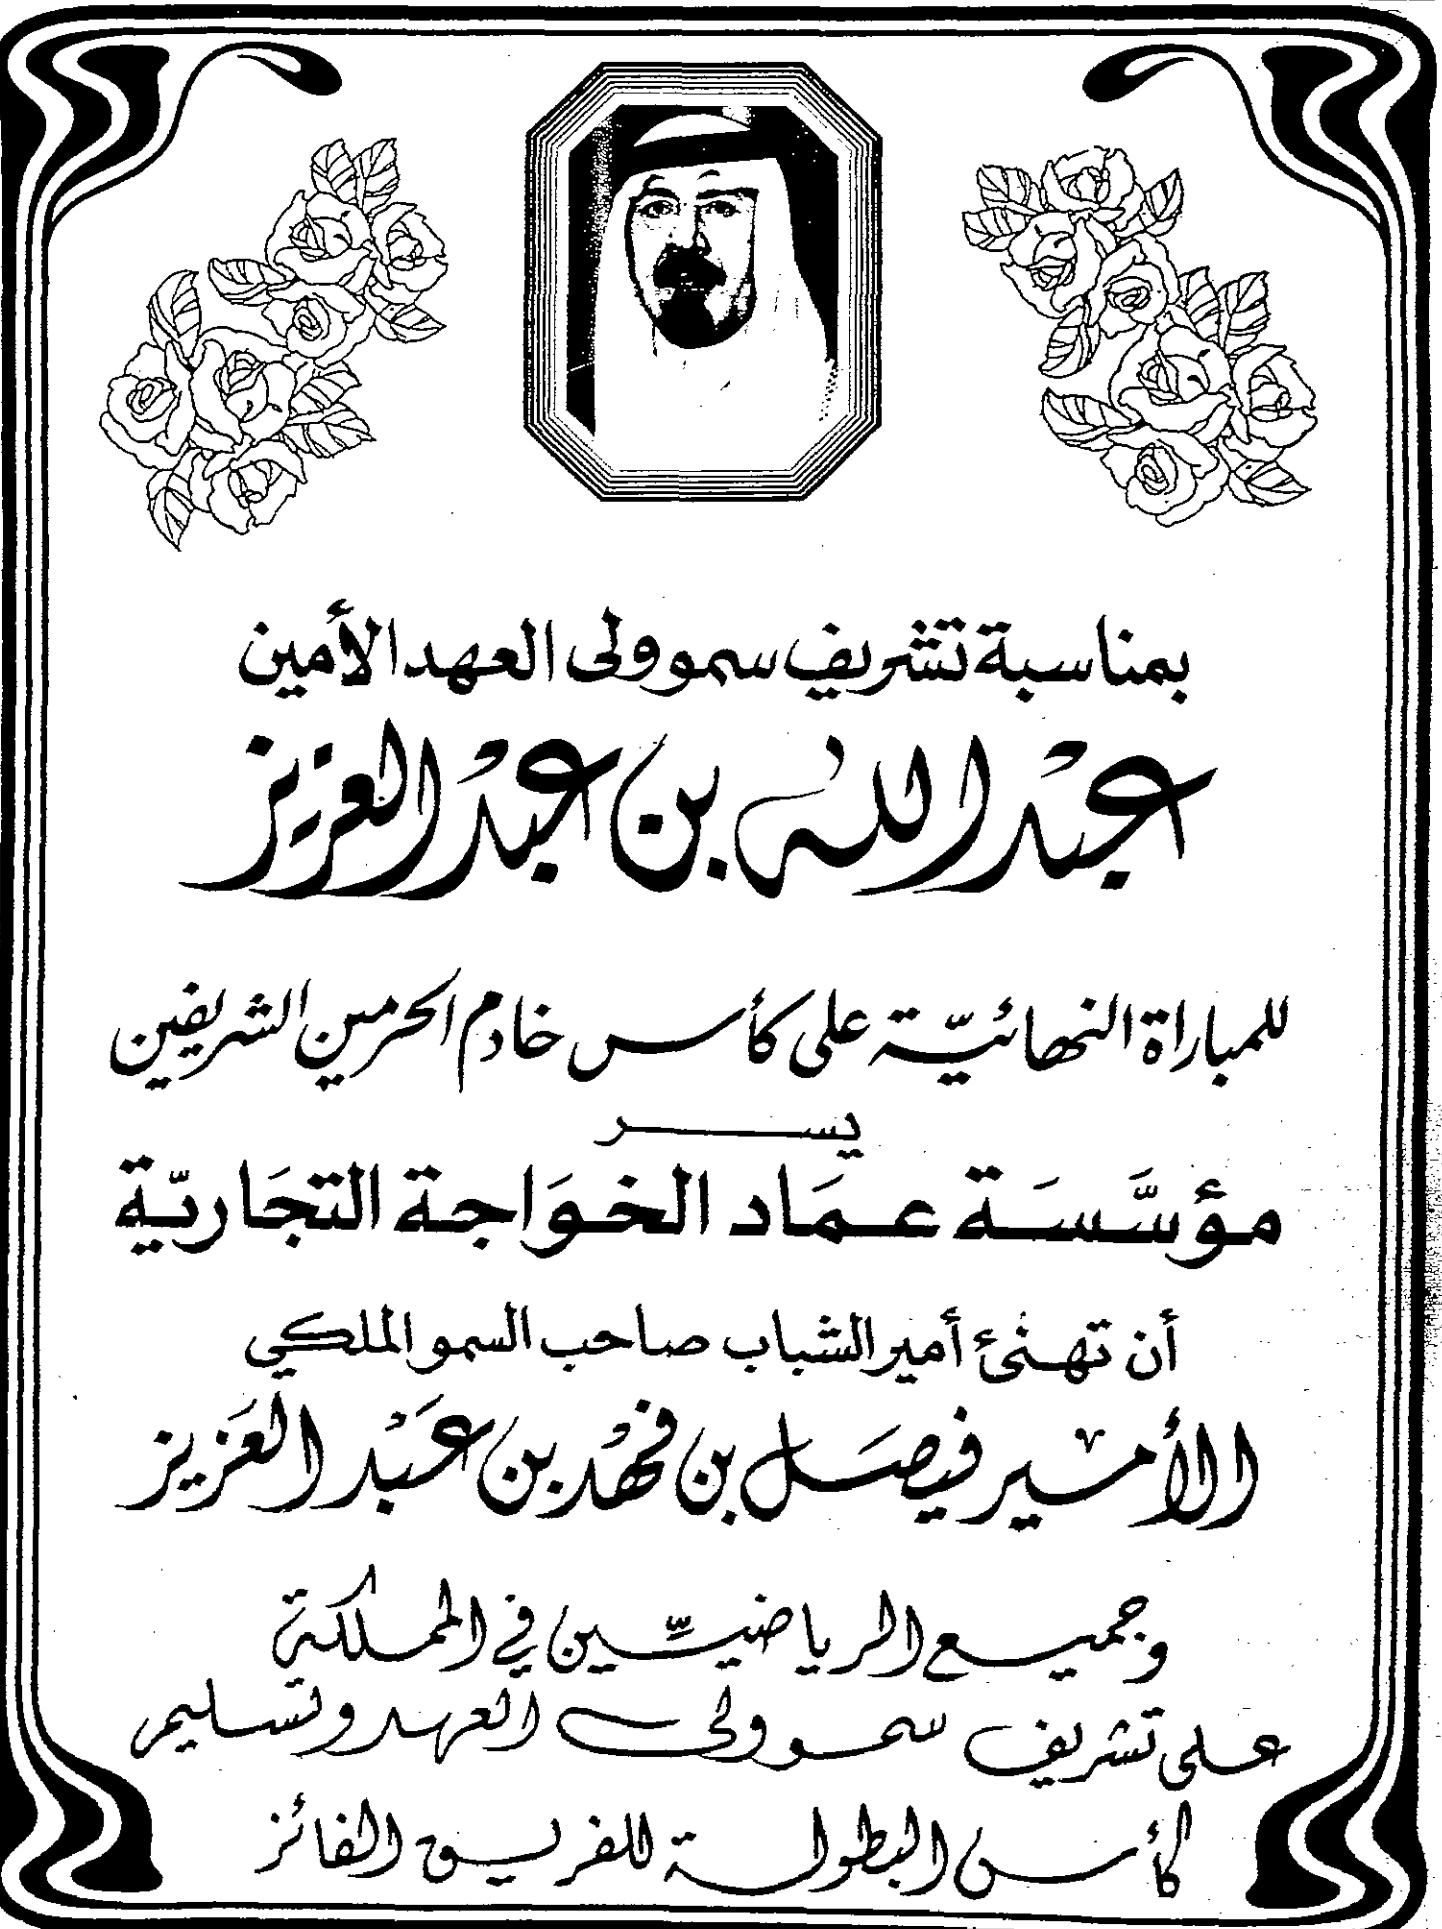 بمناسبة تشريف سمو ولى العهد الأمين
عبدالله بن عبدالعزيز
للمباراة النهائيّة على كأس خادم الحرمين الشريفين
يســر
مؤسَّسَة عمَاد الخوَاجة التجَاريّة
أن تهنئ أمير الشباب صاحب السمو الملكي
الأمير فيصَل بن فهْد بن عَبْد العَزيز
وجميع الرياضيّين في المملكة
على تشريف سمو ولى العهد وتسليم
كأس البطولة للفريق الفائز